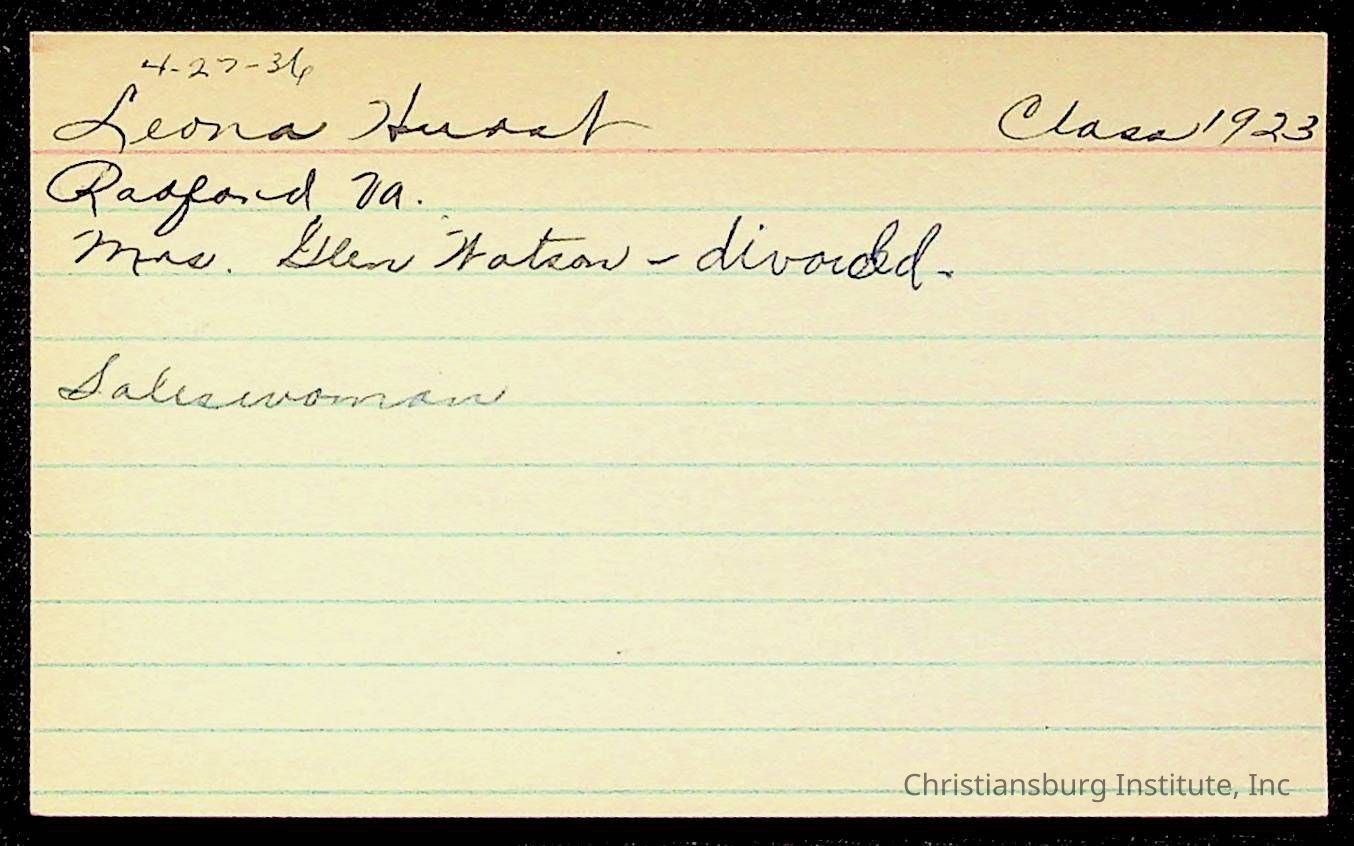 4-27-36
Leona Hurst Class 1923
Radford Va.
Mrs. Glen Watson - divorced.
Saleswoman
Christiansburg Institute, Inc